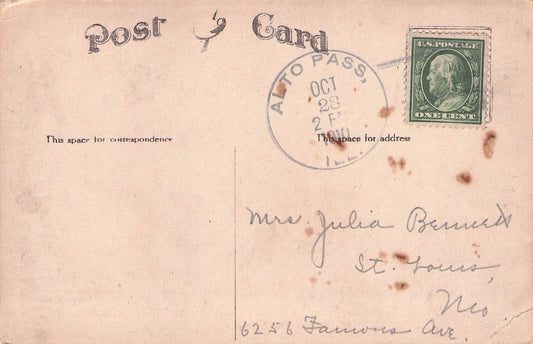 Post Card
U.S. POSTAGE
ONE CENT
ALTO PASS,
OCT
28
2 PM
1910
ILL.
This space for correspondence
This space for address
Mrs. Julia Bennett
St. Louis,
Mo
6256 Famous Ave.